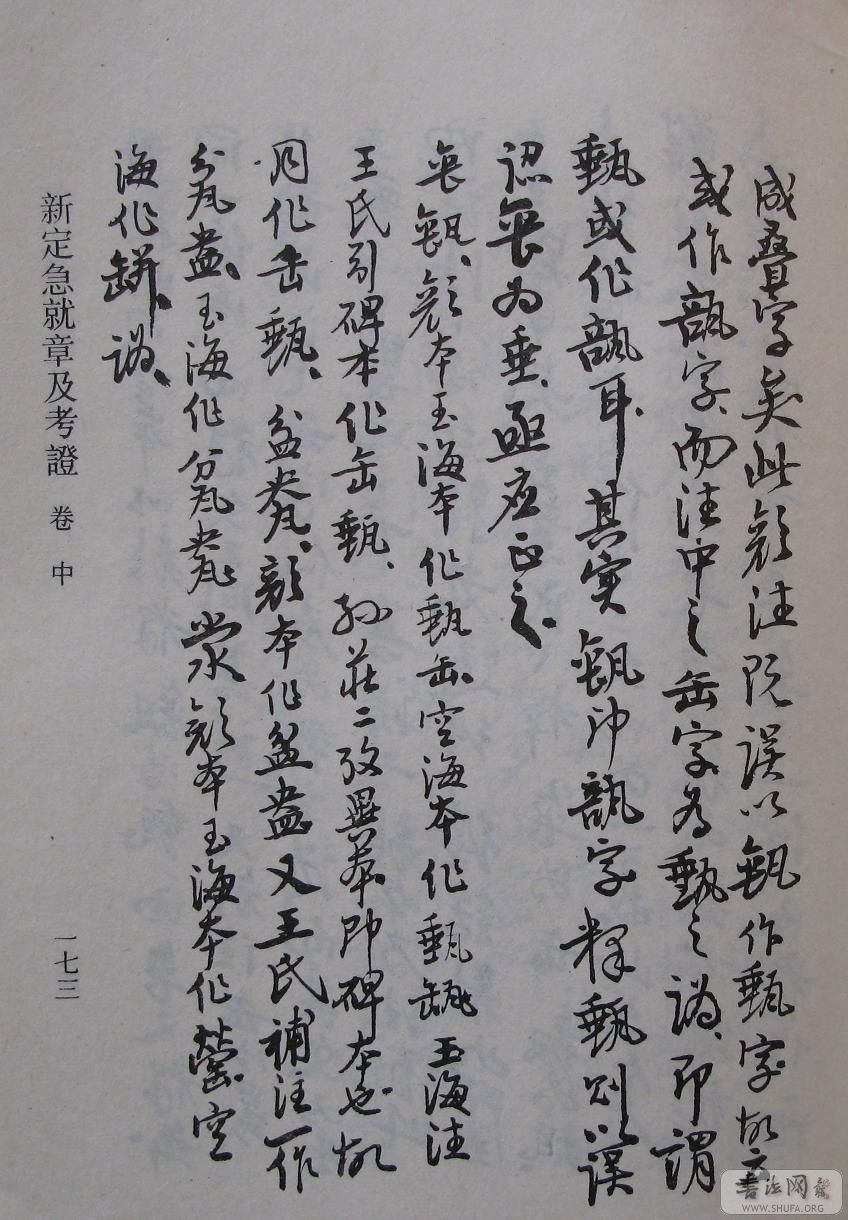 成疊字矣此顏注既誤以㼽作甀字故云
或作瓿字而注中之缶字為甀之譌即謂
甀或作瓿耳其實㼽即瓿字釋甀則以誤
認㐭為垂亟應正之
㼽顏本玉海本作甀缶空海本作甀缻玉海注
王氏引碑本作缶甀孫莊二攷異本即碑本也故
同作缶甀盆䀇顏本作盆盎又王氏補注一作
瓫盎玉海作瓫瓽甇顏本玉海本作罃空
海作缾譌
新定急就章及考證 卷 中
一七三
書法网
WWW.SHUFA.ORG